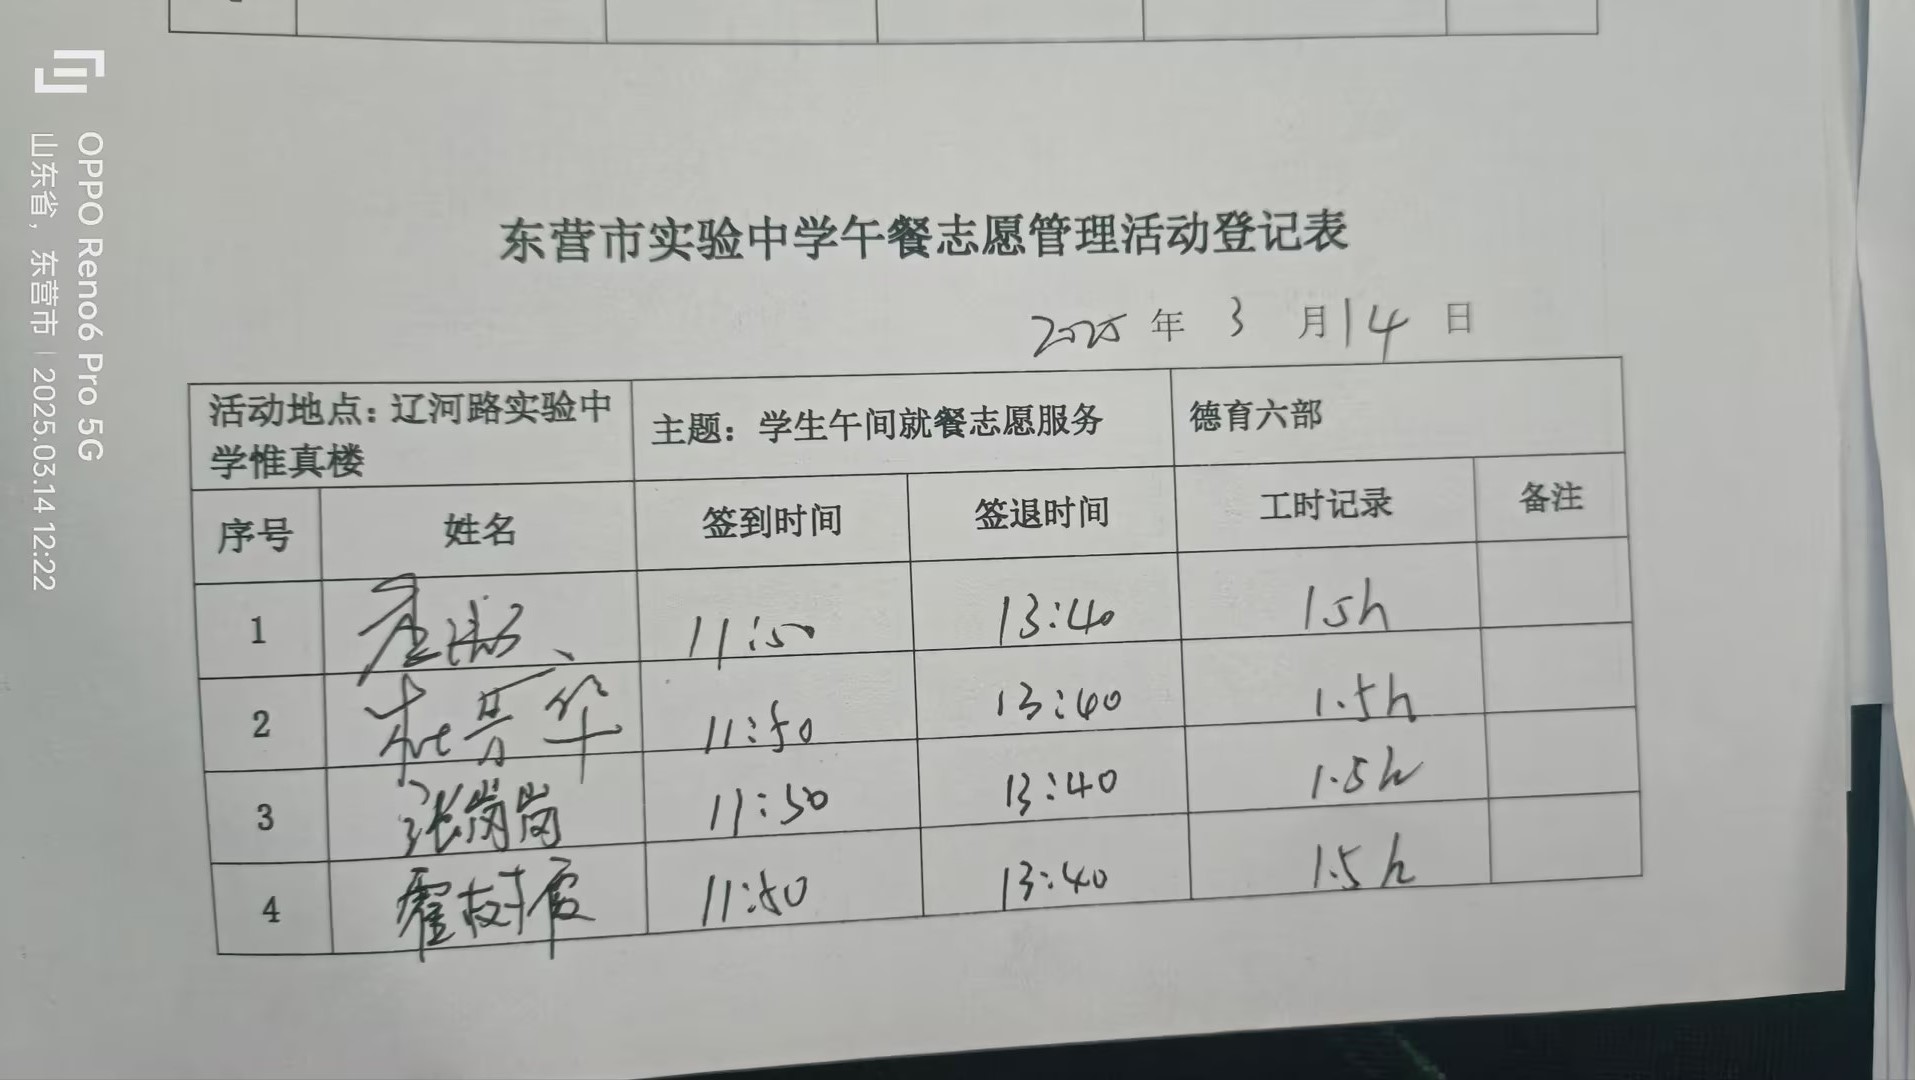 东营市实验中学午餐志愿管理活动登记表
2025 年 3 月 14 日
活动地点：辽河路实验中
学惟真楼
主题：学生午间就餐志愿服务
德育六部
序号 姓名 签到时间 签退时间 工时记录 备注
1 11:50 13:40 1.5h
2 华 11:50 13:40 1.5h
3 张岗岗 11:50 13:40 1.5h
4 霍树霞 11:50 13:40 1.5h
OPPO Reno6 Pro 5G
山东省，东营市 | 2025.03.14 12:22